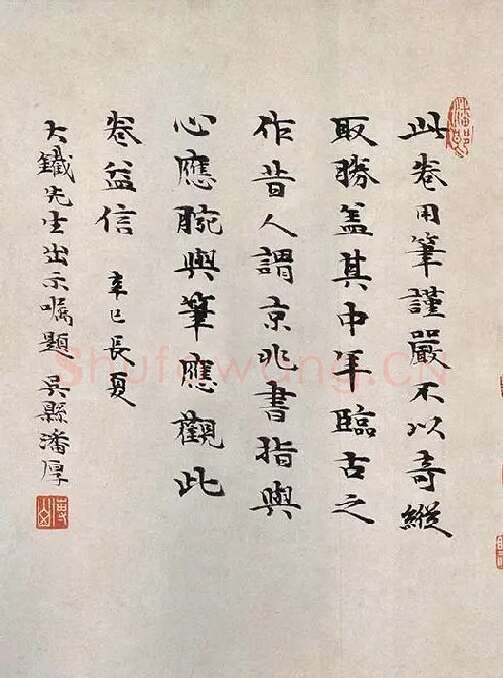 此卷用筆謹嚴不以奇縱
取勝盖其中年臨古之
作昔人謂京兆書指與
心應腕與筆應觀此
卷益信 辛巳長夏
大鐵先生出示嘱題 吳縣潘厚
Shufawang.CN